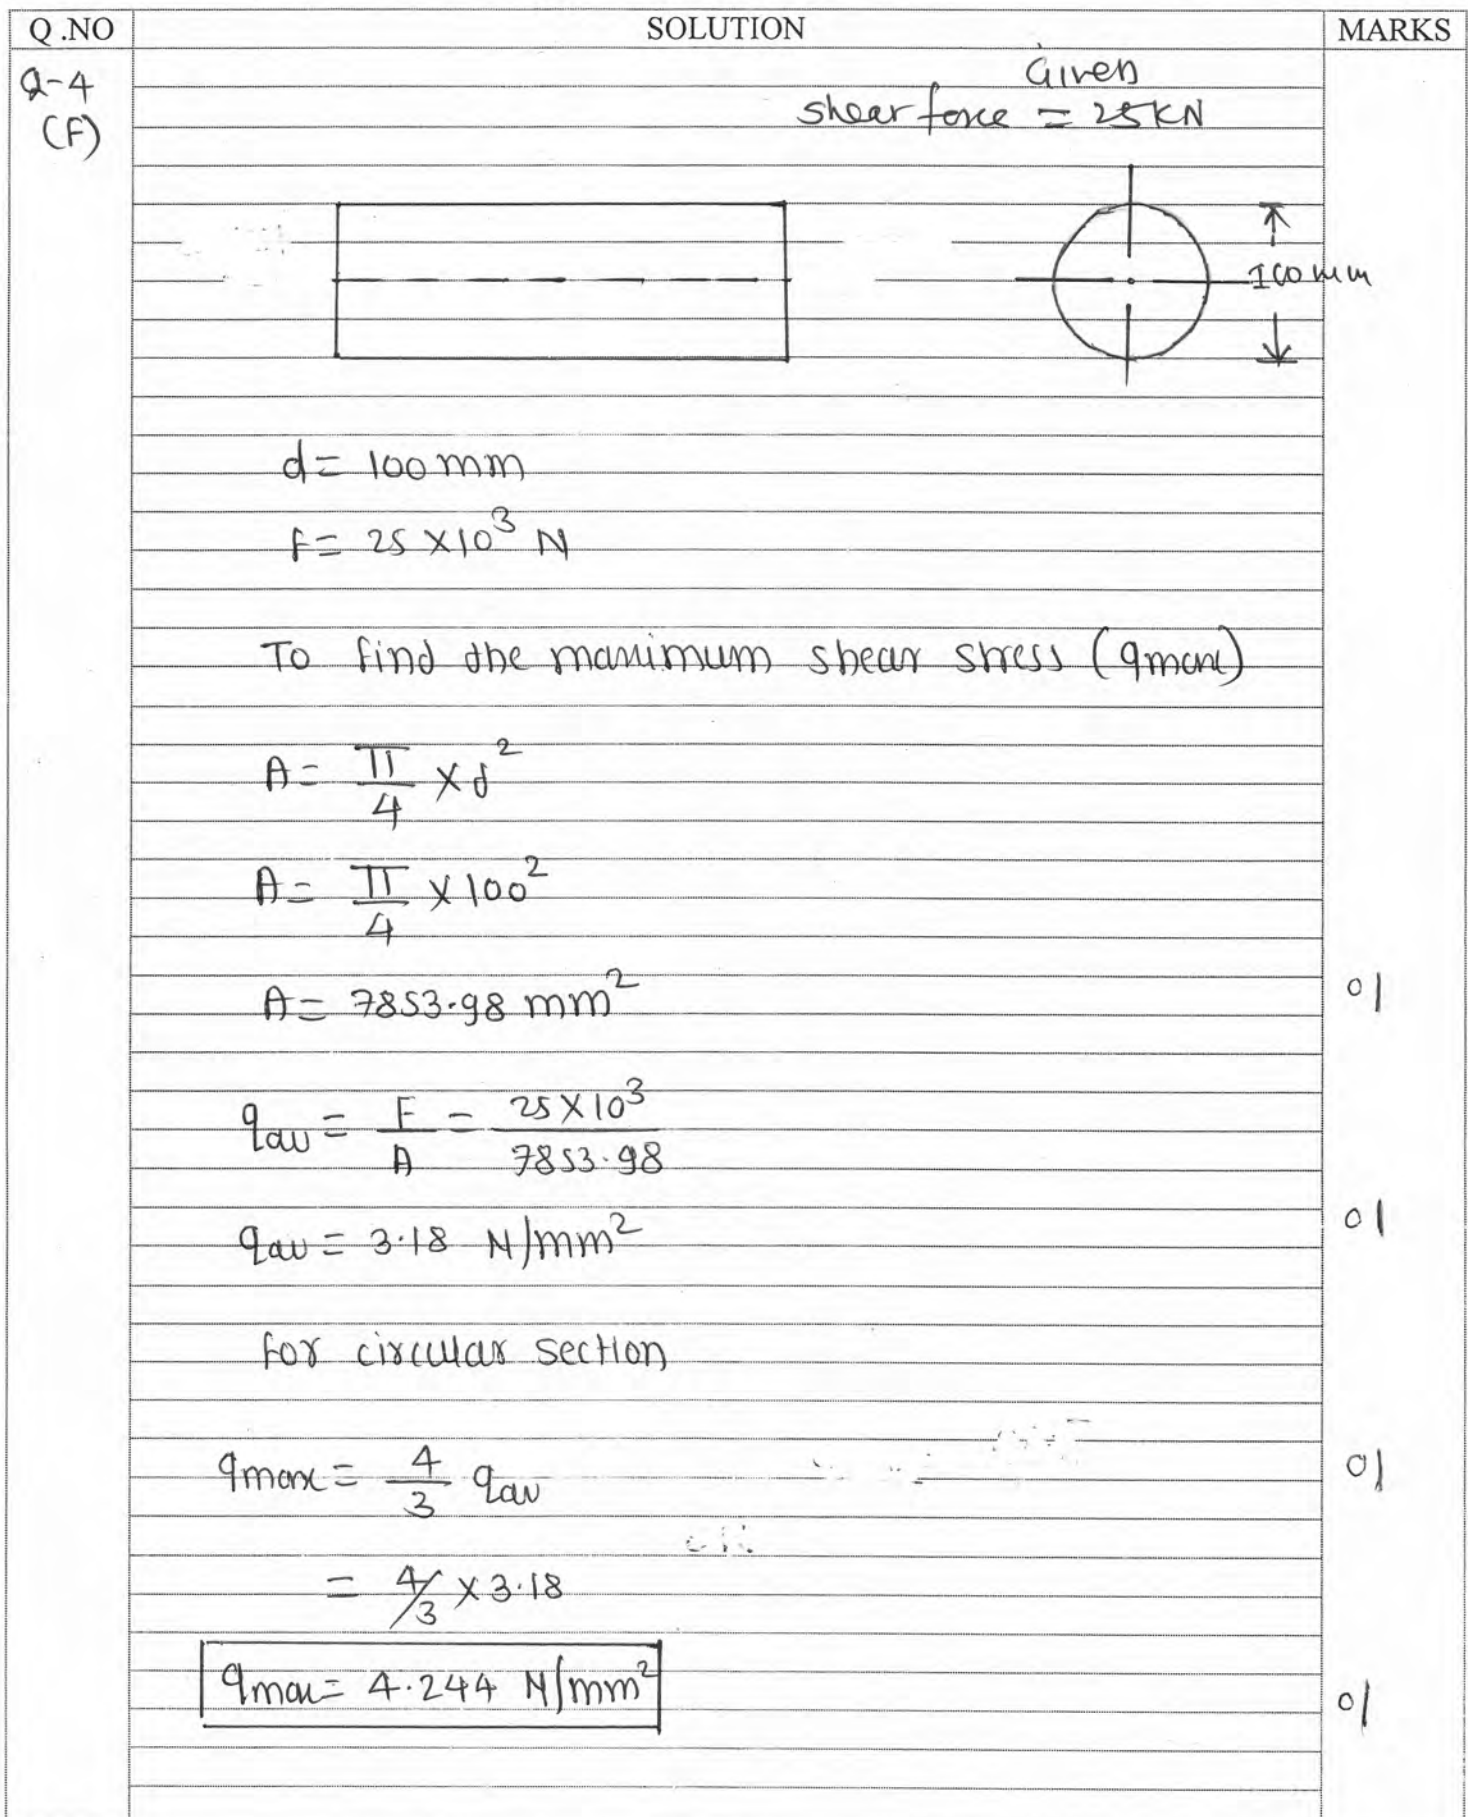 Q.NO SOLUTION MARKS
Q-4
(F)
Given
shear force = 25KN
100mm
d= 100mm
F= 25 X10³ N
To find the maximum shear stress (qmax)
A= π/4 × d²
A= π/4 × 100²
A= 7853.98 mm² 01
qav = F/A = 25X10³/7853.98
qav = 3.18 N/mm² 01
for circular section
qmax = 4/3 qav 01
= 4/3 × 3.18
qmax = 4.244 N/mm² 01